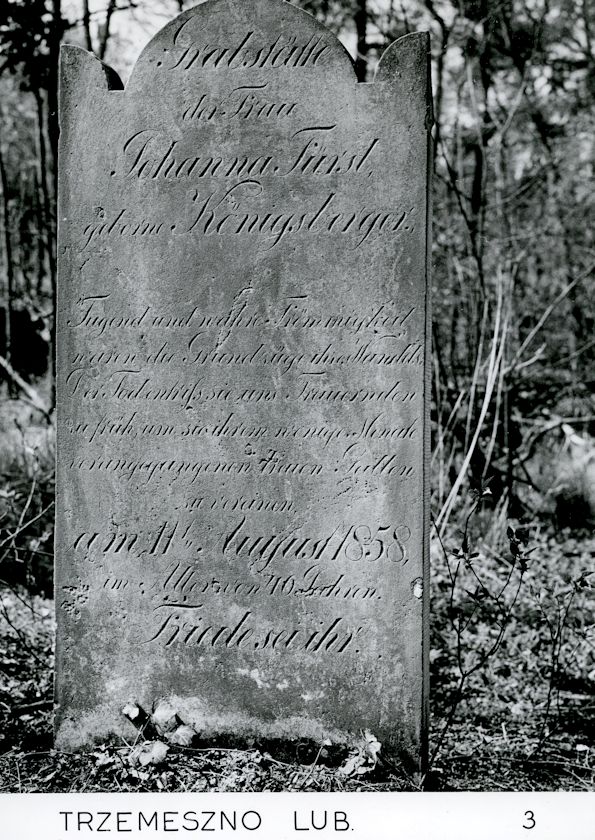 Grabstätte
der Frau
Johanna Fürst,
geborne Königsberger.
Tugend und wahre Frömmigkeit
waren die Grundzüge ihres Wandels,
Der Tod enriß sie uns Trauernden
zu früh, um sie ihrem wenige Monate
vorangegangenen treuen Gatten
zu vereinen,
am 11 August 1858,
im Alter von 46 Jahren.
Friede sei ihr.
TRZEMESZNO LUB. 3